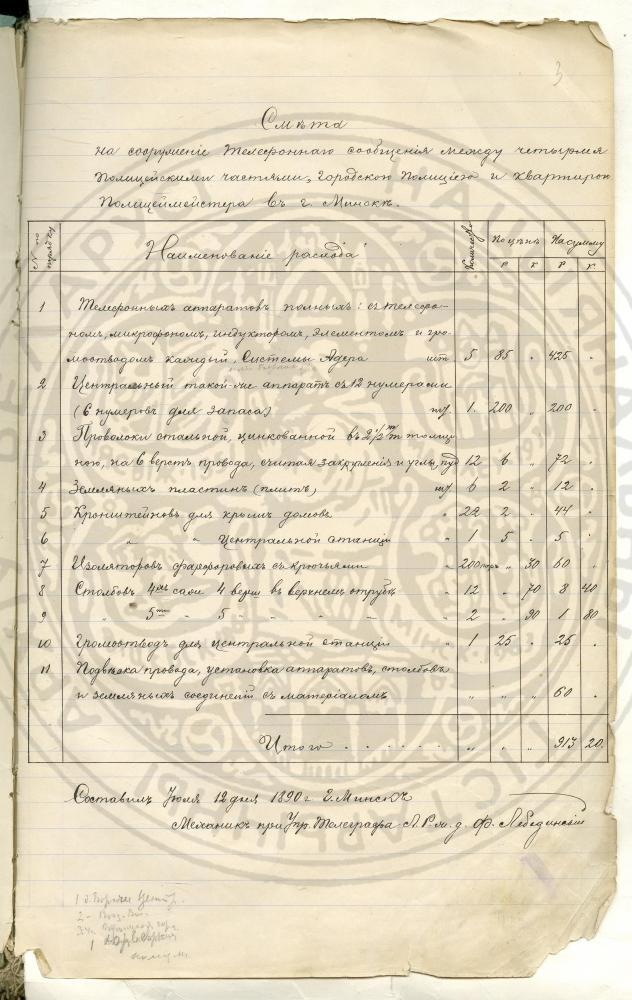 3
Смѣта
на сооруженіе Телефоннаго сообщенія между четырмя
Полицейскими частями, Городскою Полиціею и квартирою
Полицеймейстера въ г. Минскѣ.
№ по порядку Наименованіе расхода Количество По цѣнѣ На сумму
Р. К. Р. К.
1 Телефонныхъ аппаратовъ полныхъ: съ телефо-
номъ, микрофономъ, индукторомъ, элементомъ и гро-
моотводомъ каждый, Системы Адера шт. 5 85 „ 425 „
2 Центральный такой-же аппаратъ съ 12 нумерами
(6 нумеровъ для запаса) шт. 1. 200 „ 200 „
3 Проволоки стальной, цинкованной въ 2½ m/m толщи-
ною, на 6 верстъ провода, считая закрутенія и углы, пуд 12 6 „ 72 „
4 Земляныхъ пластинъ (плитъ) шт. 6 2 „ 12 „
5 Кронштейновъ для крышъ домовъ „ 22 2 „ 44 „
6 „ „ Центральной станціи „ 1 5 „ 5 „
7 Изоляторовъ фарфоровыхъ съ крючьями „ 200 „ 30 60 „
8 Столбовъ 4хъ саж 4 верш въ верхнемъ отрубѣ „ 12 „ 70 8 40
9 „ 5ти „ 5 „ „ „ „ „ 2 „ 90 1 80
10 Громоотводъ для центральной станціи „ 1 25 „ 25 „
11 Подвѣска провода, установка аппаратовъ, столбовъ
и земляныхъ соединеній съ матеріаломъ „ „ „ 60 „
Итого . . . . . . „ „ „ 913 20.
Составилъ Іюля 12 дня 1890 г. Г. Минскъ
Механикъ при Упр. Телеграфа Л. Р. ж. д. Ф. Лебединскій